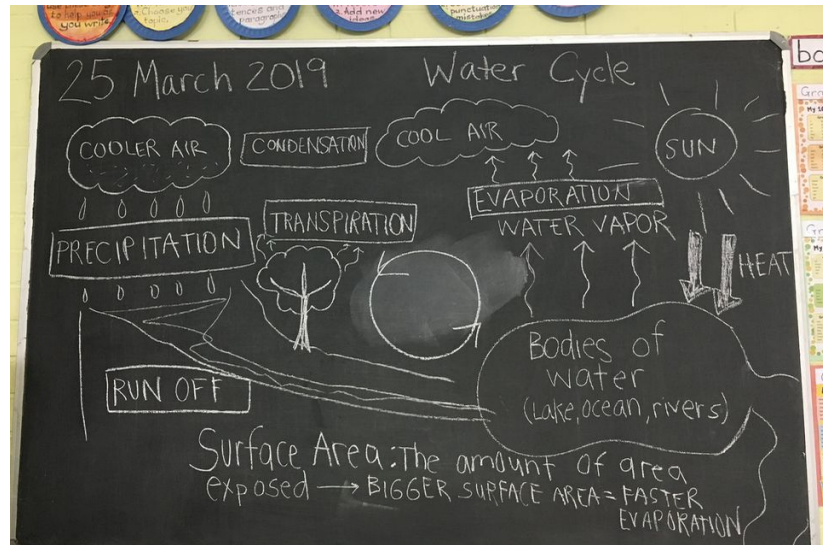 to help you
you write.
Choose your
topic.
tences and
paragraphs
2. Add new
ideas
punctuation
mistakes
25 March 2019
Water Cycle
COOLER AIR
CONDENSATION
COOL AIR
SUN
EVAPORATION
WATER VAPOR
TRANSPIRATION
PRECIPITATION
HEAT
Bodies of
Water
(Lake, ocean, rivers)
RUN OFF
Surface Area: The amount of area
exposed → BIGGER SURFACE AREA = FASTER
EVAPORATION
bo